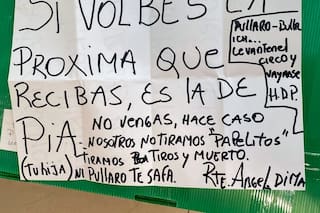 SI VOLBES LA
PROXIMA QUE
RECIBAS, ES LA DE
PIA
(TU HIJA)
NO VENGAS, HACE CASO
NOSOTROS NO TIRAMOS "PAPELITOS"
TIRAMOS TIROS Y MUERTO.
NI PULLARO TE SAFA.
RTE. ANGEL DIMA
PULLARO - BULL
RICH...
LEVANTEN EL
CIRCO Y
VAYANSE
H.D.P.